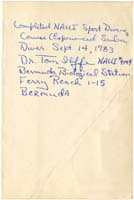 Completed NAUI Sport Diving
Course (Experienced Scuba
Diver. Sept. 14, 1983
Dr. Tom Iliffe NAUI
Bermuda Biological Station
Ferry Reach 1-15
BERMUDA